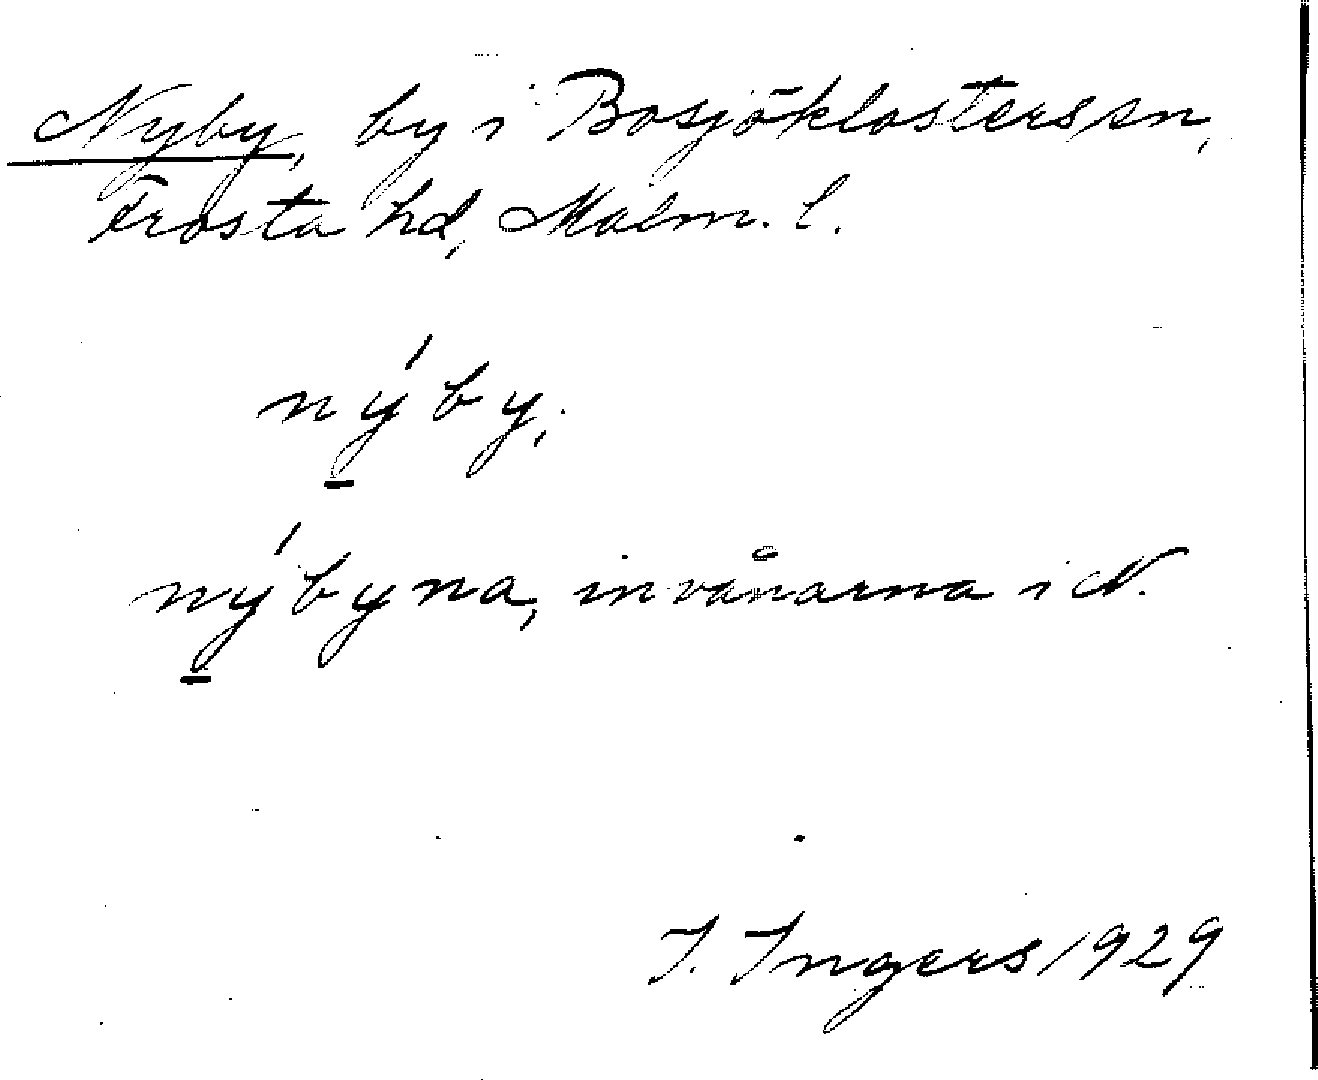 Nyby, by i Bosjöklosters sn,
Frosta hd, Malm. l.
nýby,
nýbyna, invånarna i N.
I. Ingers 1929